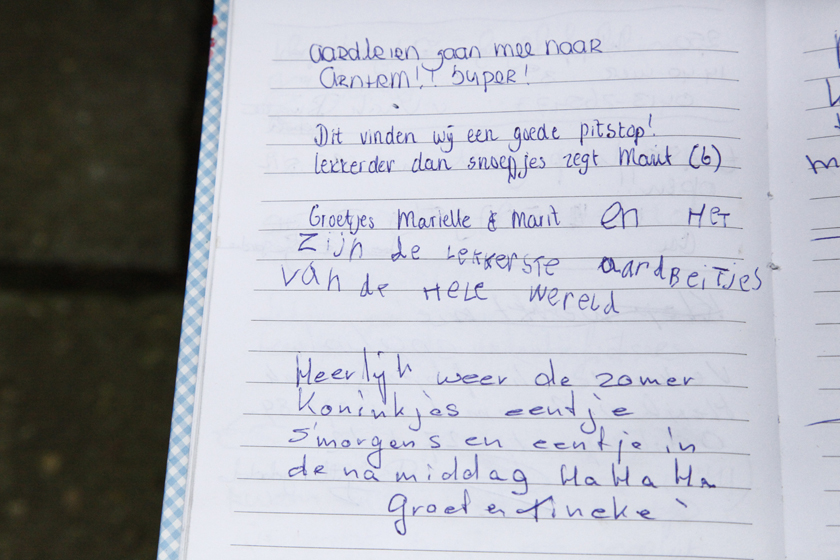 aardbeien gaan mee naar
Arnhem!! Super!
Dit vinden wij een goede pitstop!
lekkerder dan snoepjes zegt Marit (6)
Groetjes Marielle & Marit en HET
Zijn de LEKKERSTE aardBEiTJES
van de HELE WERELD
Heerlijk weer de zomer
Koninkjes eentje
s'morgens en eentje in
de na middag HaHaHa
Groet en Tineke